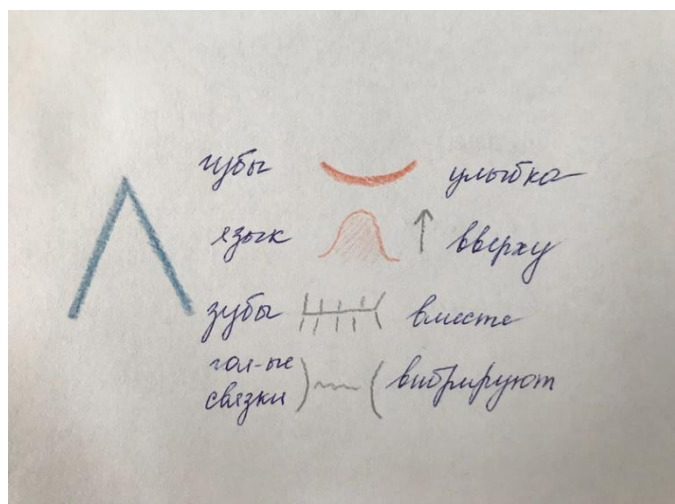 Л
губы улыбка
язык вверху
зубы вместе
гол-ые
связки вибрируют